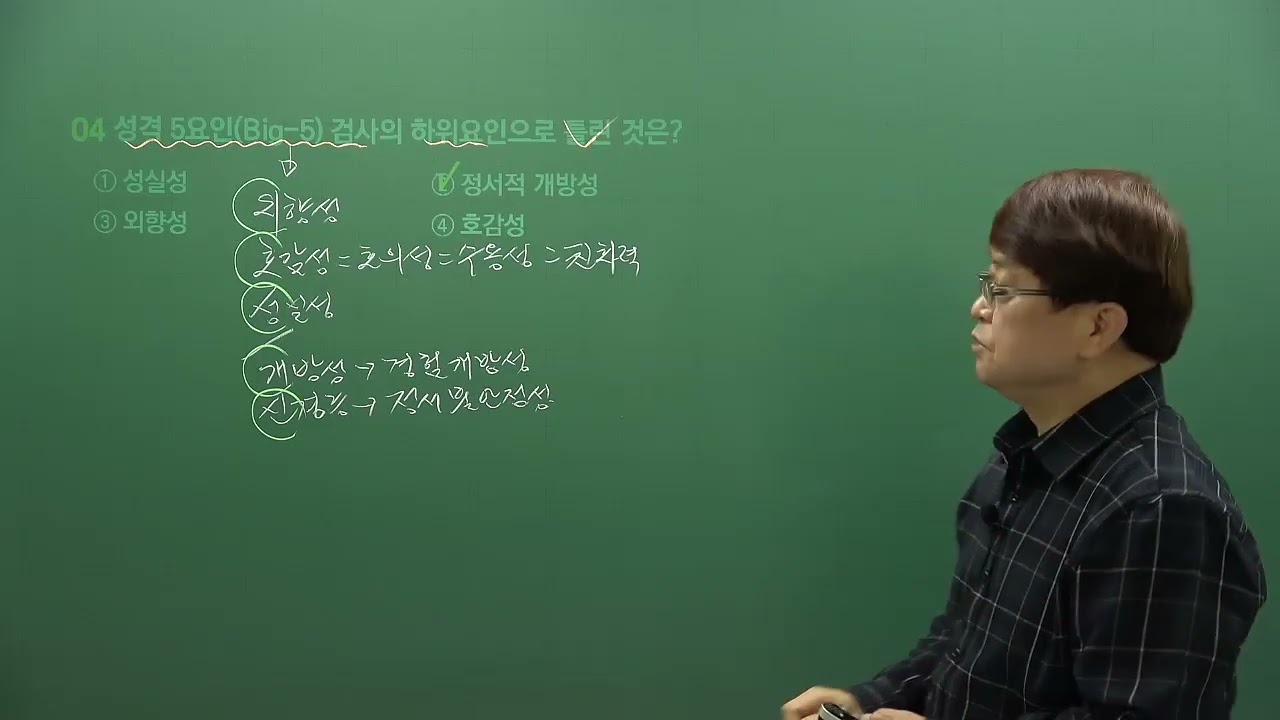 04 성격 5요인(Big-5) 검사의 하위요인으로 틀린 것은?
① 성실성
② 정서적 개방성
③ 외향성
④ 호감성
외향성
호감성 = 호의성 = 수용성 = 친화력
성실성
개방성 → 경험개방성
신경증 → 정서불안정성